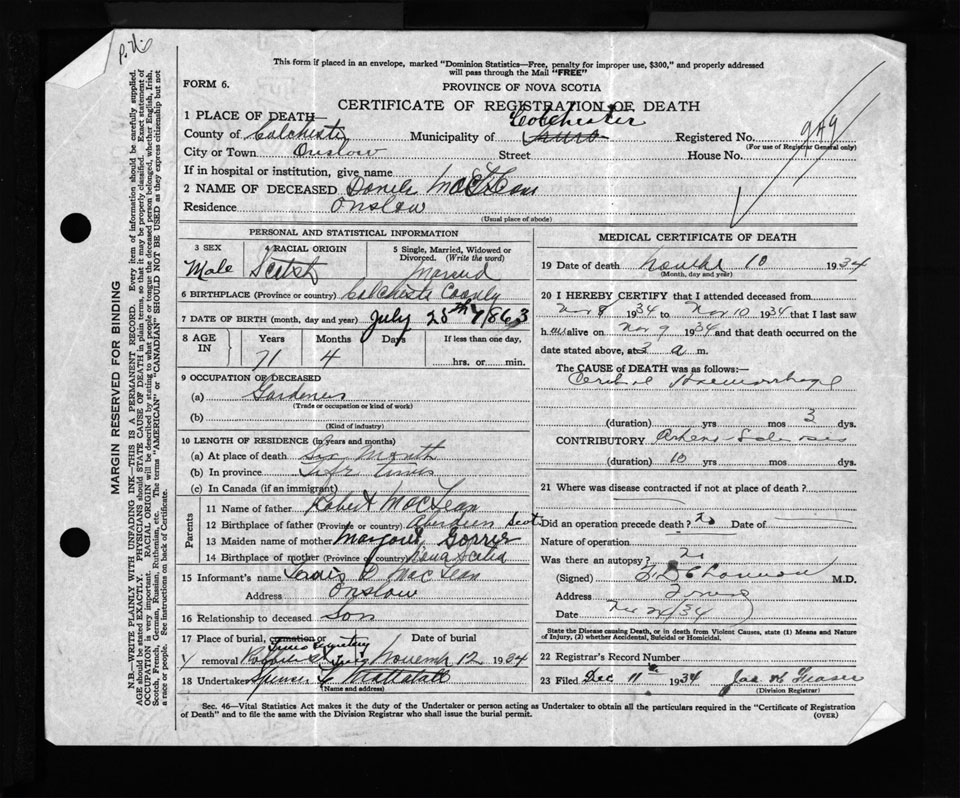 This form if placed in an envelope, marked "Dominion Statistics—Free, penalty for improper use, $300," and properly addressed
will pass through the Mail "FREE"
FORM 6.
PROVINCE OF NOVA SCOTIA
CERTIFICATE OF REGISTRATION OF DEATH
1 PLACE OF DEATH— Colchester
County of Colchester Municipality of Truro Registered No. 949
(For use of Registrar General only)
City or Town Onslow Street House No.
If in hospital or institution, give name
2 NAME OF DECEASED MacLean
Residence Onslow
(Usual place of abode)
PERSONAL AND STATISTICAL INFORMATION
3 SEX 4 RACIAL ORIGIN 5 Single, Married, Widowed or Divorced. (Write the word)
Male Scotch Married
6 BIRTHPLACE (Province or country) Colchester County
7 DATE OF BIRTH (month, day and year) July 28th 1863
8 AGE IN Years Months Days If less than one day,
71 4 hrs. or min.
9 OCCUPATION OF DECEASED
(a) Gardener
(Trade or occupation or kind of work)
(b)
(Kind of industry)
10 LENGTH OF RESIDENCE (in years and months)
(a) At place of death Six Month
(b) In province Life time
(c) In Canada (if an immigrant)
Parents
11 Name of father Robert MacLean
12 Birthplace of father (Province or country) Aberdeen Scot
13 Maiden name of mother Gorrie
14 Birthplace of mother (Province or country) Nova Scotia
15 Informant's name MacLean
Address Onslow
16 Relationship to deceased Son
17 Place of burial, cremation or Date of burial
Cemetery
removal November 12 1934
18 Undertaker Spencer Mattatall
(Name and address)
MEDICAL CERTIFICATE OF DEATH
19 Date of death 10 1934
(Month, day and year)
20 I HEREBY CERTIFY that I attended deceased from
Nov 8 1934 to Nov 10 1934 that I last saw
h alive on Nov 9 1934 and that death occurred on
date stated above, at 3 a m.
The CAUSE of DEATH was as follows:—
Cerebral Haemorrhage
(duration) yrs mos 3 dys.
CONTRIBUTORY Arterio Sclerosis
(duration) 10 yrs mos dys.
21 Where was disease contracted if not at place of death?
Did an operation precede death? No Date of
Nature of operation
Was there an autopsy? No
(Signed) M.D.
Address Truro
Date /34
State the Disease causing Death, or in death from Violent Causes, state (1) Means and Nature
of Injury, (2) whether Accidental, Suicidal or Homicidal.
22 Registrar's Record Number
23 Filed Dec 11th 1934 Jas Fraser
(Division Registrar)
Sec. 46—Vital Statistics Act makes it the duty of the Undertaker or person acting as Undertaker to obtain all the particulars required in the "Certificate of Registration
of Death" and to file the same with the Division Registrar who shall issue the burial permit.
(OVER)
MARGIN RESERVED FOR BINDING
N.B.—WRITE PLAINLY WITH UNFADING INK—THIS IS A PERMANENT RECORD. Every item of information should be carefully supplied.
AGE should be stated EXACTLY. PHYSICIANS should STATE CAUSE OF DEATH in plain terms, so that it may be properly classified. Exact statement of
OCCUPATION is very important. RACIAL ORIGIN will be described by stating to what people or tongue the deceased person belonged, whether English, Irish,
Scotch, French, German, Russian, Ruthenian, etc. The terms "AMERICAN" or "CANADIAN" SHOULD NOT BE USED as they express citizenship but not
a race or people. See instructions on back of Certificate.